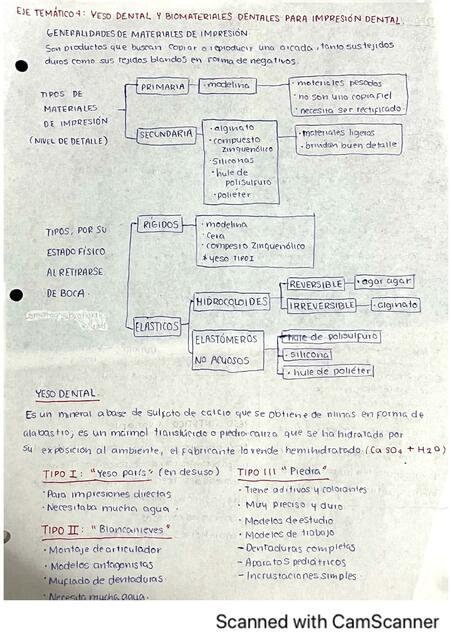 EJE TEMÁTICO 4: YESO DENTAL Y BIOMATERIALES DENTALES PARA IMPRESIÓN DENTAL.
GENERALIDADES DE MATERIALES DE IMPRESIÓN
Son productos que buscan copiar o reproducir una arcada, tanto sus tejidos
duros como sus tejidos blandos en forma de negativos.
TIPOS DE
MATERIALES
DE IMPRESIÓN
(NIVEL DE DETALLE)
PRIMARIA
• modelina
• materiales pesados
• no son una copia fiel
• necesita ser rectificado.
SECUNDARIA
• alginato
• compuesto
zinquenólico
• siliconas
• hule de
polisulfuro
• poliéter
• materiales ligeros
• brindan buen detalle
TIPOS, POR SU
ESTADO FÍSICO
AL RETIRARSE
DE BOCA.
RÍGIDOS
• modelina
• cera
• compesto zinquenólico
* yeso TIPO I
ELASTICOS
HIDROCOLOIDES
REVERSIBLE
• agar agar
IRREVERSIBLE
• alginato
ELASTÓMEROS
NO ACUOSOS
• hule de polisulfuro
• silicona
• hule de poliéter
YESO DENTAL.
Es un mineral a base de sulfato de calcio que se obtiene de minas en forma de
alabastro; es un mármol translúcido o piedra caliza que se ha hidratado por
su exposición al ambiente, el fabricante lo vende hemihidratado (CaSO4 + H2O)
TIPO I: "Yeso parís" (en desuso)
• Para impresiones directas
• Necesitaba mucha agua.
TIPO II: "Blancanieves"
• Montaje de articulador
• Modelos antagonistas
• Muflado de dentaduras
• Necesita mucha agua.
TIPO III "Piedra"
• Tiene aditivos y colorantes
• Muy preciso y duro
• Modelos de estudio
• Modelos de trabajo
- Dentaduras completas
- Aparatos pediátricos
- Incrustaciones simples.
Scanned with CamScanner